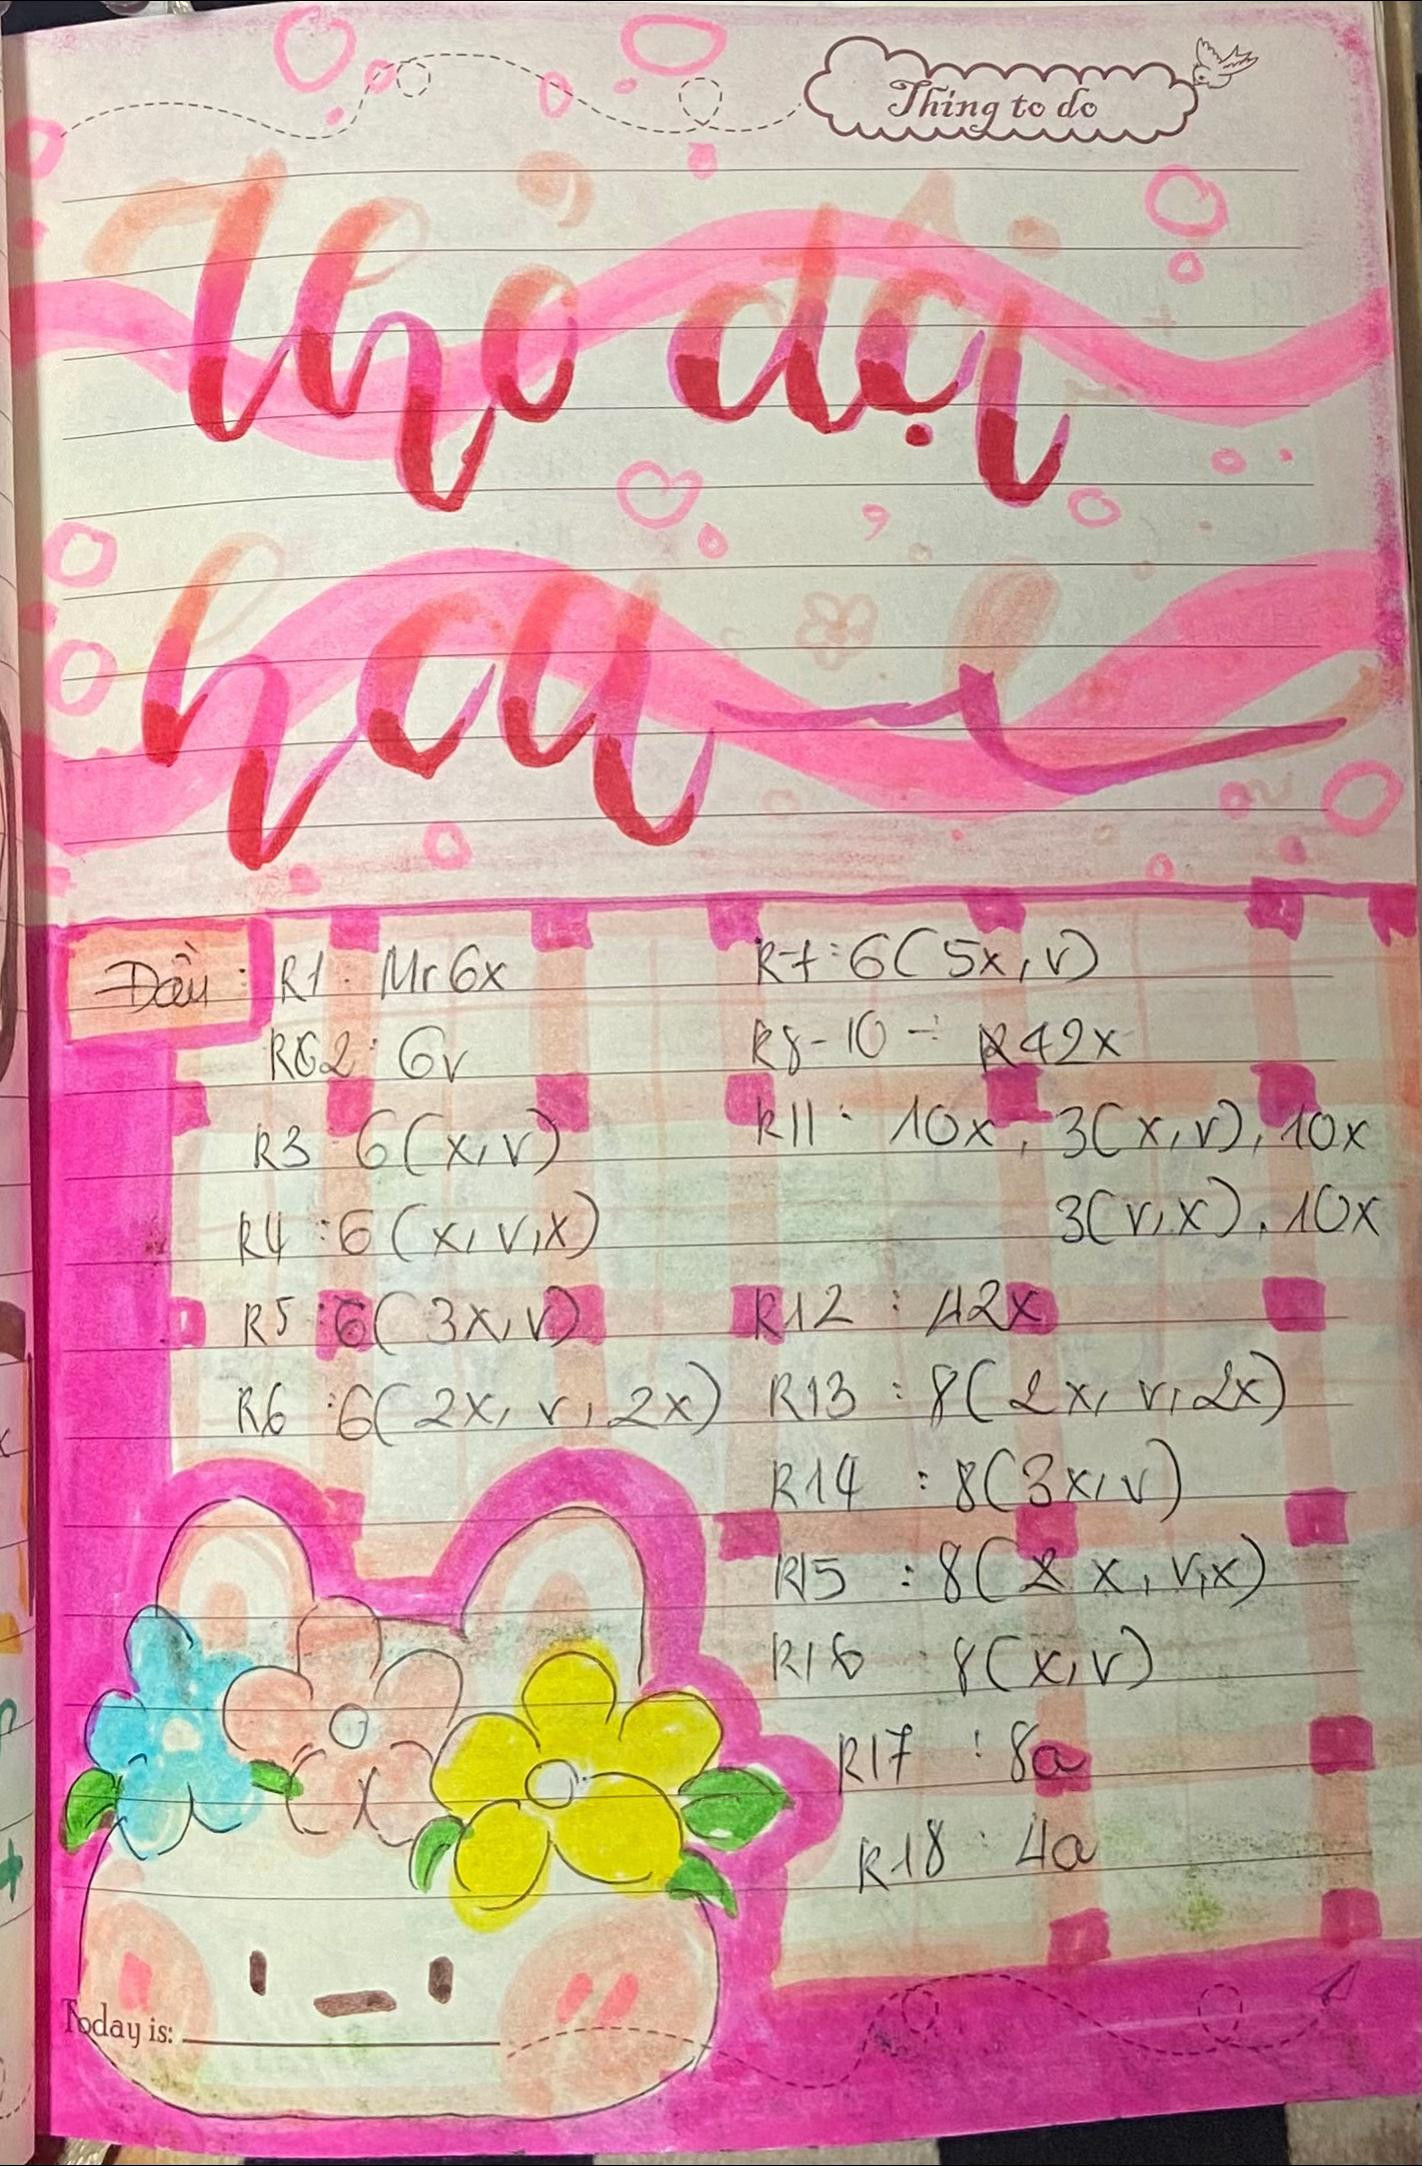 Thing to do
Thỏ đội
hoa
Đầu : R1 : Mr 6x
R2 : 6v
R3 6(x,v)
R4 : 6(x,v,x)
R5 : 6(3x,v)
R6 : 6(2x, v, 2x)
R7 : 6(5x,v)
R8-10 : 42x
R11 : 10x, 3(x,v), 10x
3(v,x), 10x
R12 : 42x
R13 : 8(2x, v, 2x)
R14 : 8(3x,v)
R15 : 8(x, v,x)
R16 8(x,v)
R17 : 8a
R18 : 4a
Today is: